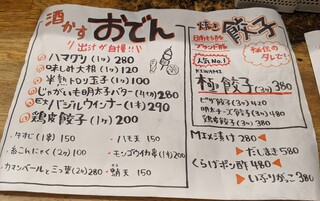 酒かすおでん
出汁が自慢!!
ハマグリ(1ヶ)280
味しみ大根(1ヶ)120
半熟トロン玉子(1ヶ)100
じゃがいも明太子バター(1ヶ)280
EXバジルウインナー(1ヶ)290
鶏皮餃子(1ヶ)200
牛すじ(1串)150
ハモ天 150
糸こんにゃく(2ヶ)100
モンゴウイカ串(1本)200
カマンベールと三つ葉(2ヶ)280
蛸天 150
焼き餃子
秘伝のタレで!
人気No.1
KIWAMI
極餃子(3ヶ)380
ピザ餃子(3ヶ)420
明太チーズ餃子(3ヶ)480
鶏皮餃子(3ヶ)380
MIX漬け280
だしまき580
くらげポン酢480
いぶりがっこ380